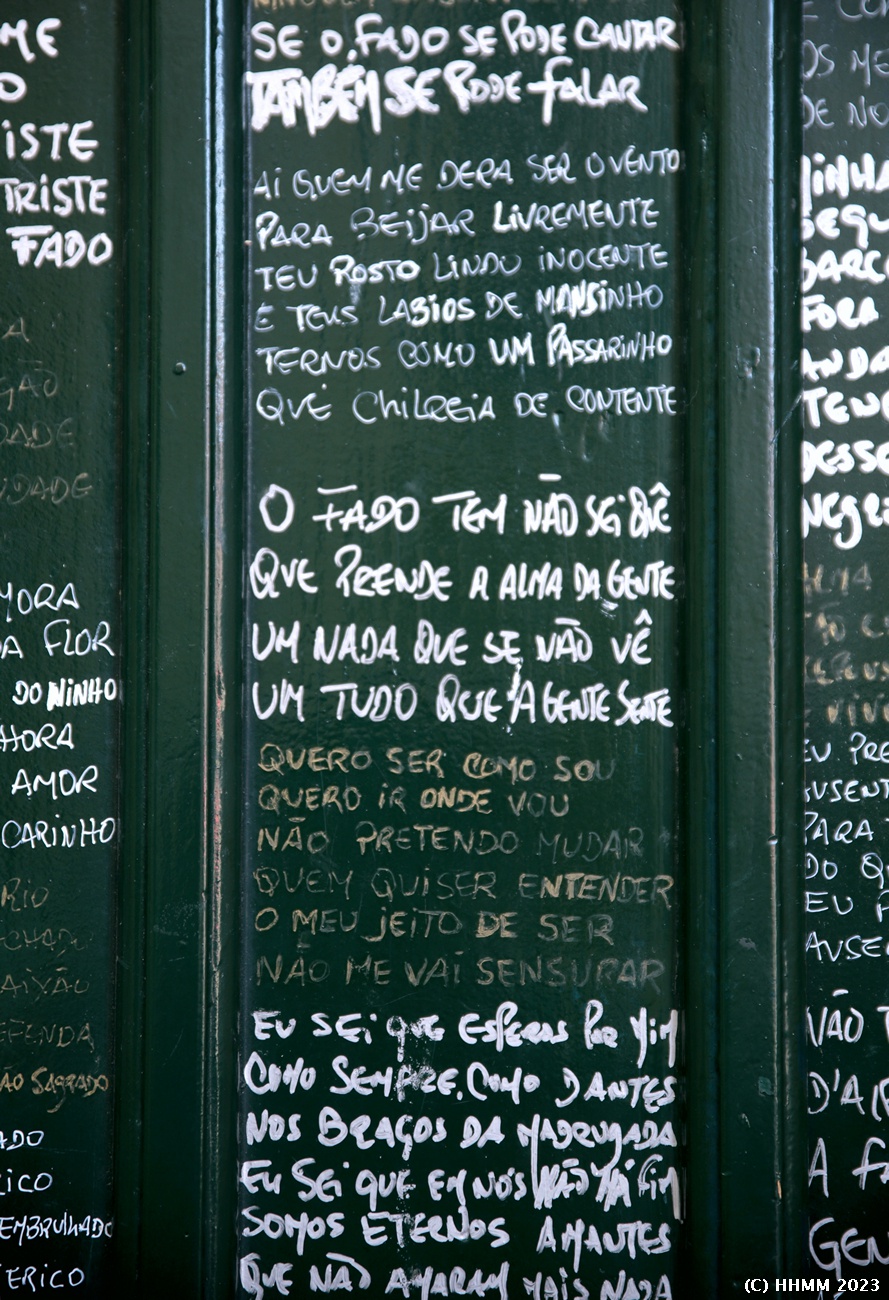 ME
O
ISTE
TRISTE
FADO
A
ÇÃO
DADE
DADE
MORA
DA FLOR
DO NINHO
HORA
AMOR
CARINHO
RIO
AIXÃO
SAGRADO
ADO
RICO
EMBRULHADO
ERICO
SE O FADO SE PODE CANTAR
TAMBÉM SE PODE FALAR
AI QUEM ME DERA SER O VENTO
PARA BEIJAR LIVREMENTE
TEU ROSTO LINDO INOCENTE
E TEUS LABIOS DE MANSINHO
TERNOS COMO UM PASSARINHO
QUE CHILREIA DE CONTENTE
O FADO TEM NÃO SEI QUÊ
QUE PRENDE A ALMA DA GENTE
UM NADA QUE SE NÃO VÊ
UM TUDO QUE A GENTE SENTE
QUERO SER COMO SOU
QUERO IR ONDE VOU
NÃO PRETENDO MUDAR
QUEM QUISER ENTENDER
O MEU JEITO DE SER
NÃO ME VAI SENSURAR
EU SEI QUE ESPERAS POR MIM
COMO SEMPRE, COMO DANTES
NOS BRAÇOS DA MADRUGADA
EU SEI QUE EM NÓS NÃO HÁ FIM
SOMOS ETERNOS AMANTES
QUE NÃO AMARAM MAIS NADA
E CO
OS ME
DE NO
MINHA
SEGU
BARC
FORA
ANDA
TEN
DESSE
NEGR
ALMA
EU PRE
AUSENT
PARA
DO QU
EU P
AUSE
NÃO T
D'A
A FA
GEN
(C) HHMM 2023